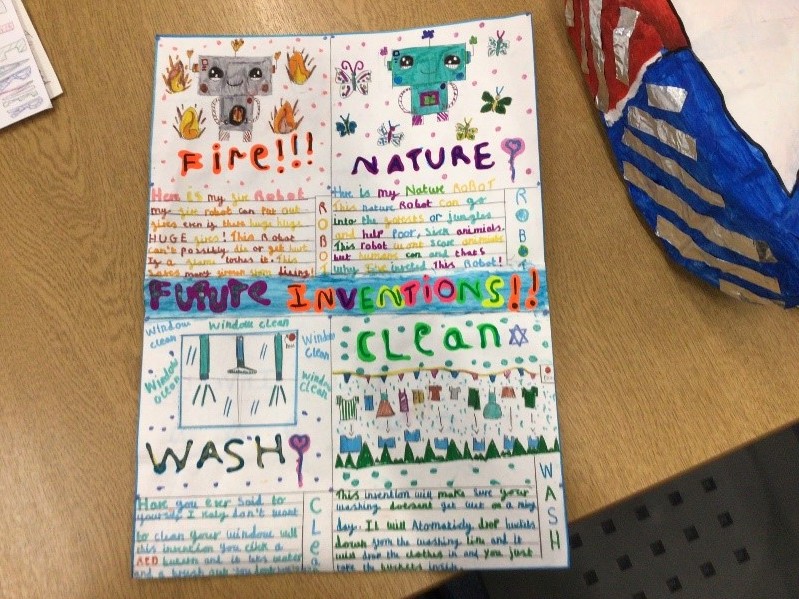 Fire!!!
NATURE
Here is my fire Robot
my fire robot can put out
fires even if there huge huge
HUGE fires! This Robot
can't possibly die or get hurt
If a flame lashes it. This
Saves many firmen from dieing!
ROBOT
Hue is my Nature ROBOT
This nature Robot can go
into the forests or jungles
and help poor, sick animals.
This robot wont scare animals
but humans can and that's
why I've inveted This Robot!
ROBOT
FUTURE INVENTIONS!!
Window clean
Window clean
Window clean
Window clean
Window clean
WASH
CLean
Have you ever said to
yourself I realy don't want
to clean your window well
this invention you click a
RED button and it lets water
and a brush out
CLea
This invention will make sure your
washing doesent get wet on a rainy
day. It will Atomaticly drop buckets
down from the washing line and it
will drop the clothes in and you just
take the buckets inside.
WASH